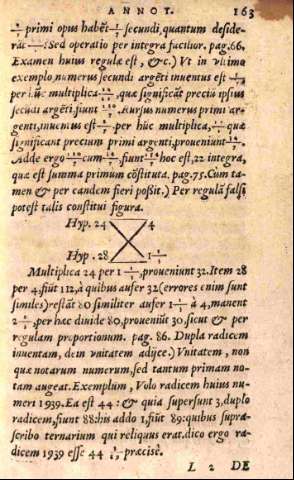 ANNOT. 163
primi opus habēt secundi, quantum deside
rat. Sed operatio per integra facilior. pag. 66.
Examen huius regulæ est, &c.) Vt in vltimo
exemplo numerus secundi argēti inuentus est
per hūc multiplica quæ significāt preciū ipsius
secūdi argēti, fiunt Rursus numerus primi ar-
genti, inuentus est per hūc multiplica, quæ
significant precium primi argenti, proueniunt
Adde ergo cum fiunt hoc est, 22 integra,
quæ est summa primum cōstituta. pag. 75. Cum ta-
men & per eandem fieri poßit.) Per regulā falsi
potest talis constitui figura.
Hyp. 24 4
Hyp. 28 1
Multiplica 24 per 1 proueniunt 32. Item 28
per 4, fiūt 112, à quibus aufer 32 (errores enim sunt
similes) restāt 80 similiter aufer 1 à 4, manent
2 per hæc diuide 80, proueniūt 30, sicut & per
regulam proportionum. pag. 86. Dupla radicem
inuentam, dein vnitatem adijce.) Vnitatem, non
quæ notarum numerum, sed tantum primam no-
tam augeat. Exemplum, Volo radicem huius nu-
meri 1939. Ea est 44: & quia supersunt 3, duplo
radicem, fiunt 88: his addo 1, fiūt 89: quibus supra-
scribo ternarium qui reliquus erat. dico ergo ra-
dicem 1939 esse 44 3/89 præcisè.
L 2 DE